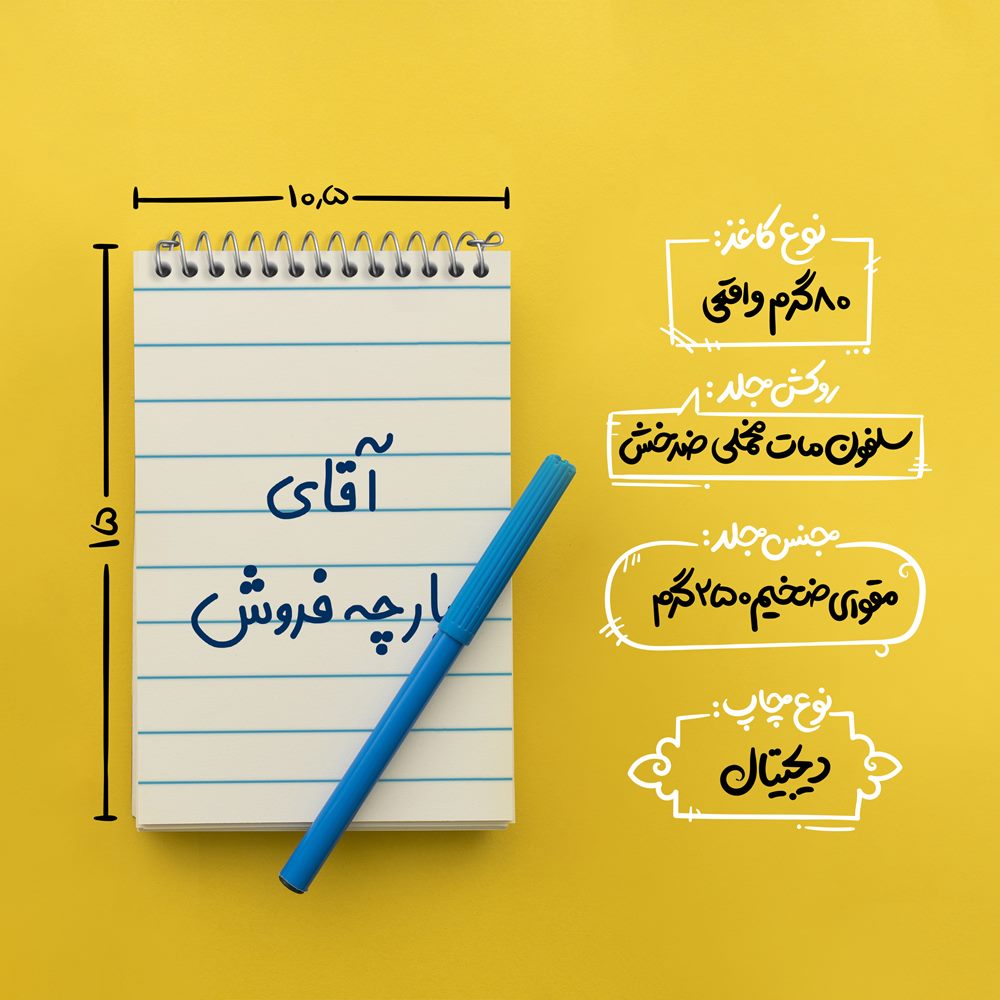 ۱۰,۵
۱۵
آقای
پارچه فروش
نوع کاغذ:
۸۰ گرم واقعی
روکش جلد:
سلفون مات مخملی ضدخش
جنس جلد:
مقوای ضخیم ۲۵۰ گرم
نوع چاپ:
دیجیتال